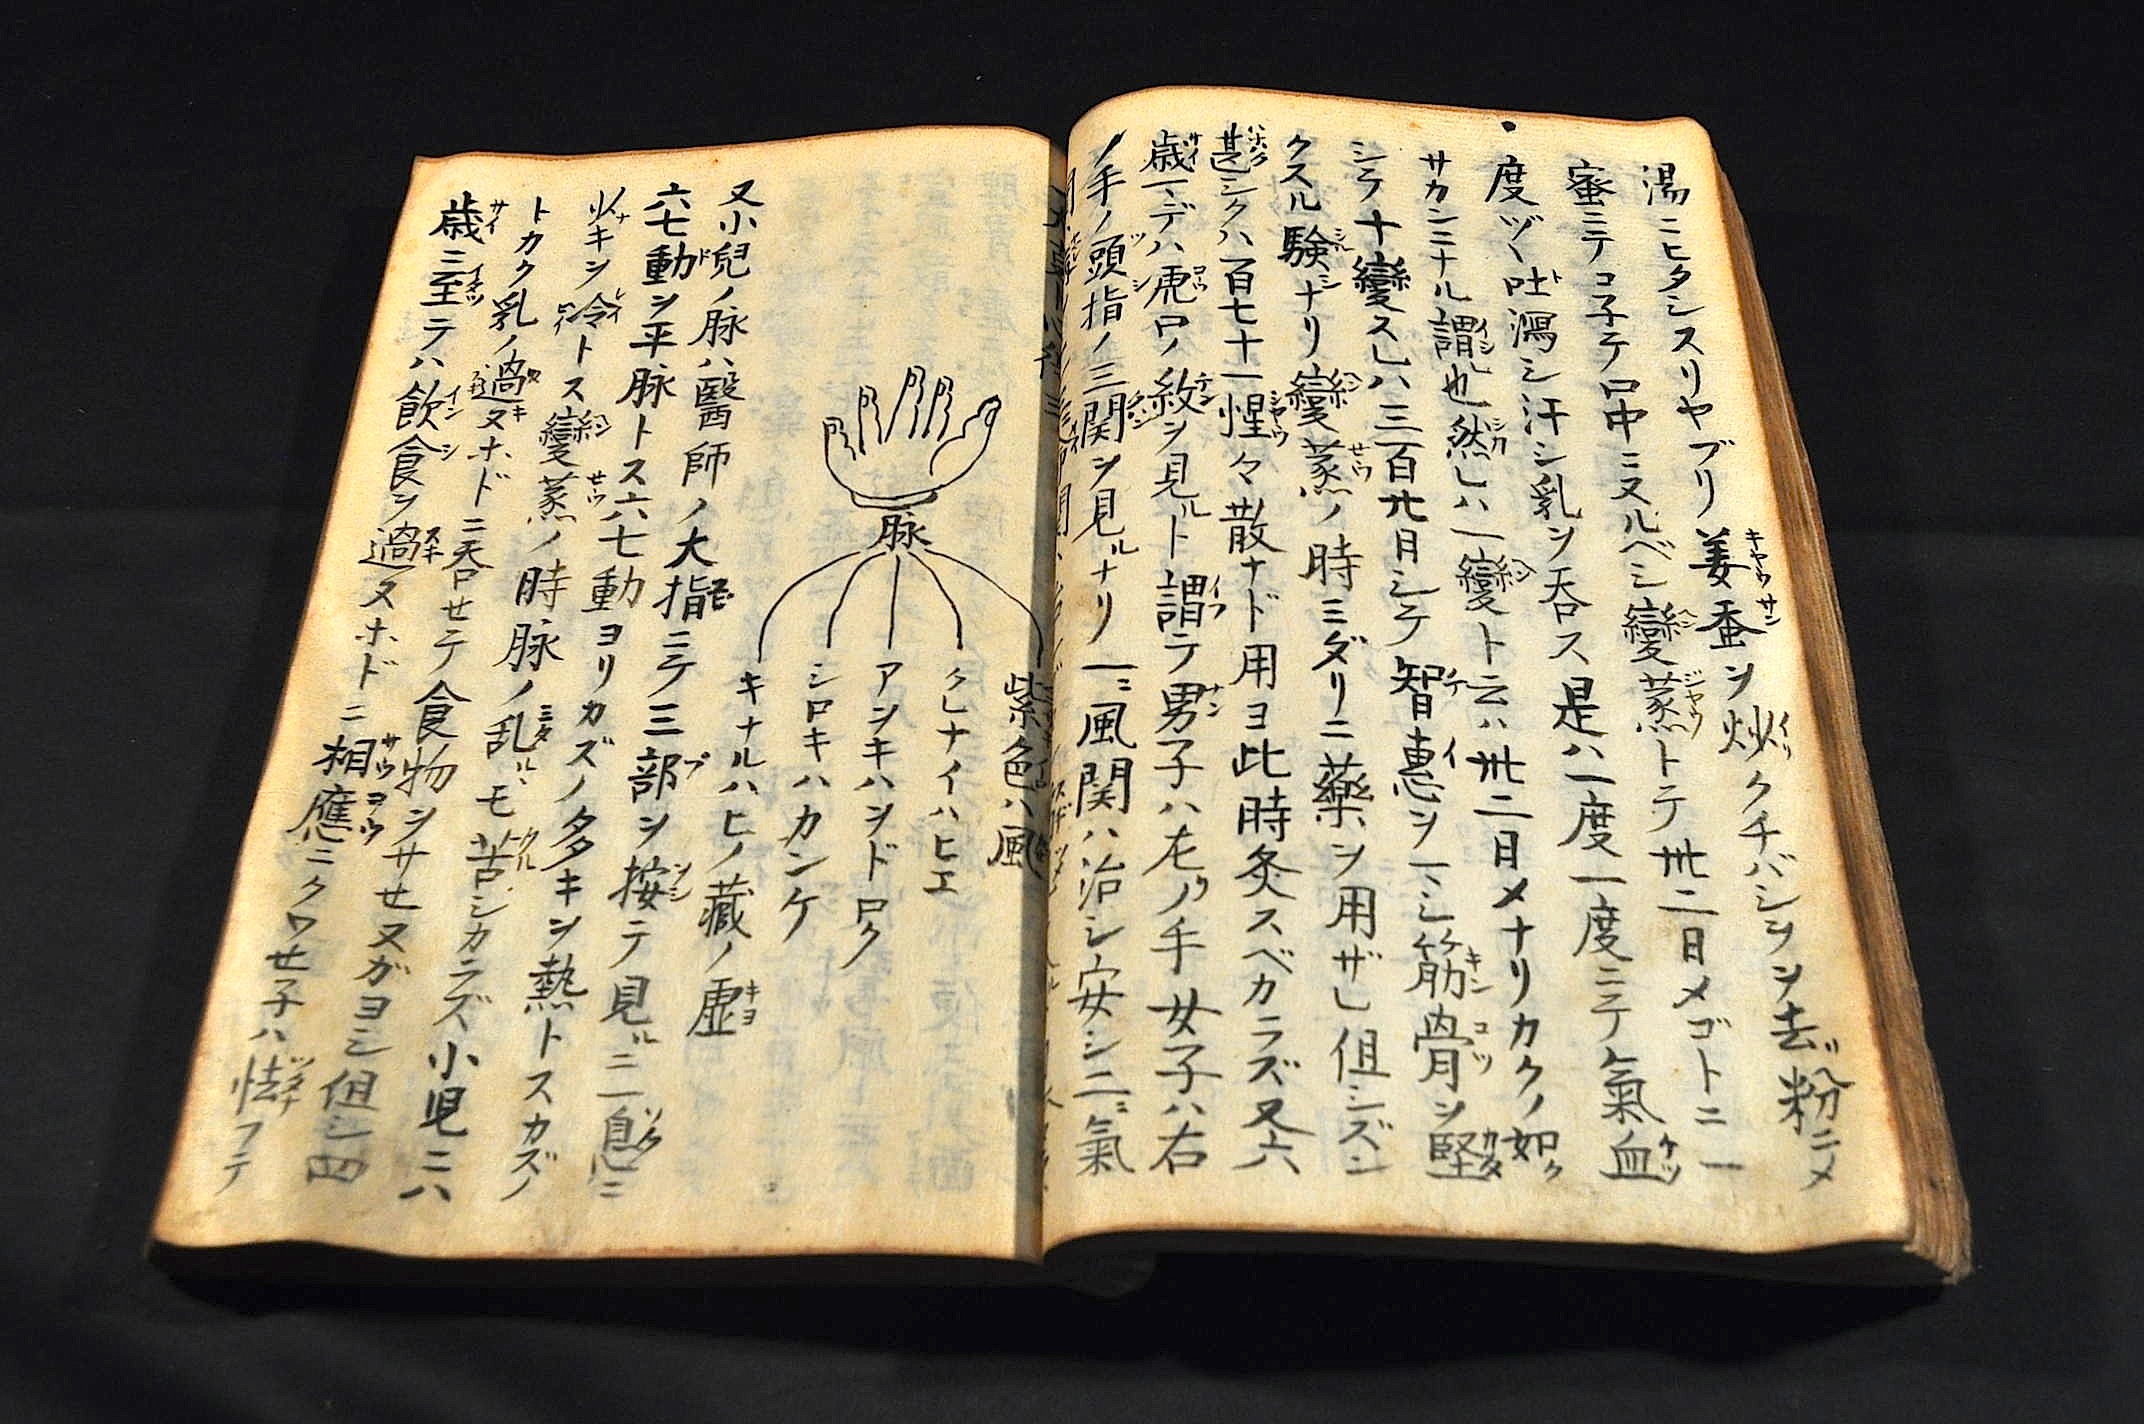 湯ニヒタシスリヤブリ姜蚕ヲ炒クチバシヲ去粉ニメ
蜜ニテコ子テ口中ニヌルベシ變蒸トテ卅二日メゴトニ一
度ヅヽ吐瀉シ汗シ乳ヲ呑ス是ハ一度一度ニテ氣血
サカンニナル謂也然レハ一變ト云ハ卅二日メナリカクノ如ク
シテ十變スレハ三百廿日シテ智恵ヲ シ筋骨ヲ堅
クスル験ナリ變蒸ノ時ミダリニ藥ヲ用ザレ但シズン
甚シクハ百七十一惺々散ナド用ヨ此時灸スベカラズ又六
歳 デハ虎口ノ紋ヲ見ルト謂テ男子ハ左ノ手女子ハ右
ノ手ノ頭指ノ三関ヲ見ルナリ一ニ風関ハ治シ安シ二ニ氣
脉
紫色ハ風
クレナイハヒエ
アヲキハヲドロク
シロキハカンケ
キナルハヒノ藏ノ虚
又小兒ノ脉ハ醫師ノ大指ニテ三部ヲ按テ見ルニ一息ニ
六七動ヲ平脉トス六七動ヨリカズノ多キヲ熱トスカズノ
少キヲ冷トス變蒸ノ時脉ノ乱ルヽモ苦シカラズ小児二八
トカク乳ノ過ヌホドニ呑セテ食物ヲサセヌガヨシ但シ四
歳ニ至テハ飲食ヲ過ヌホドニ相應ニクワセ子ハ フテ